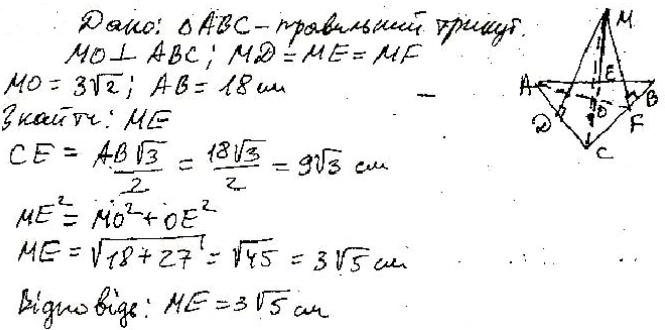 Дано: △ABC - правильний трикут.
MO⊥ABC; MD=ME=MF
MO=3√2; AB=18 см
Знайти: ME
CE = AB√3/2 = 18√3/2 = 9√3 см
ME²=MO²+OE²
ME=√18+27=√45=3√5 см
Відповідь: ME=3√5 см
M
A
E
B
D
O
F
C